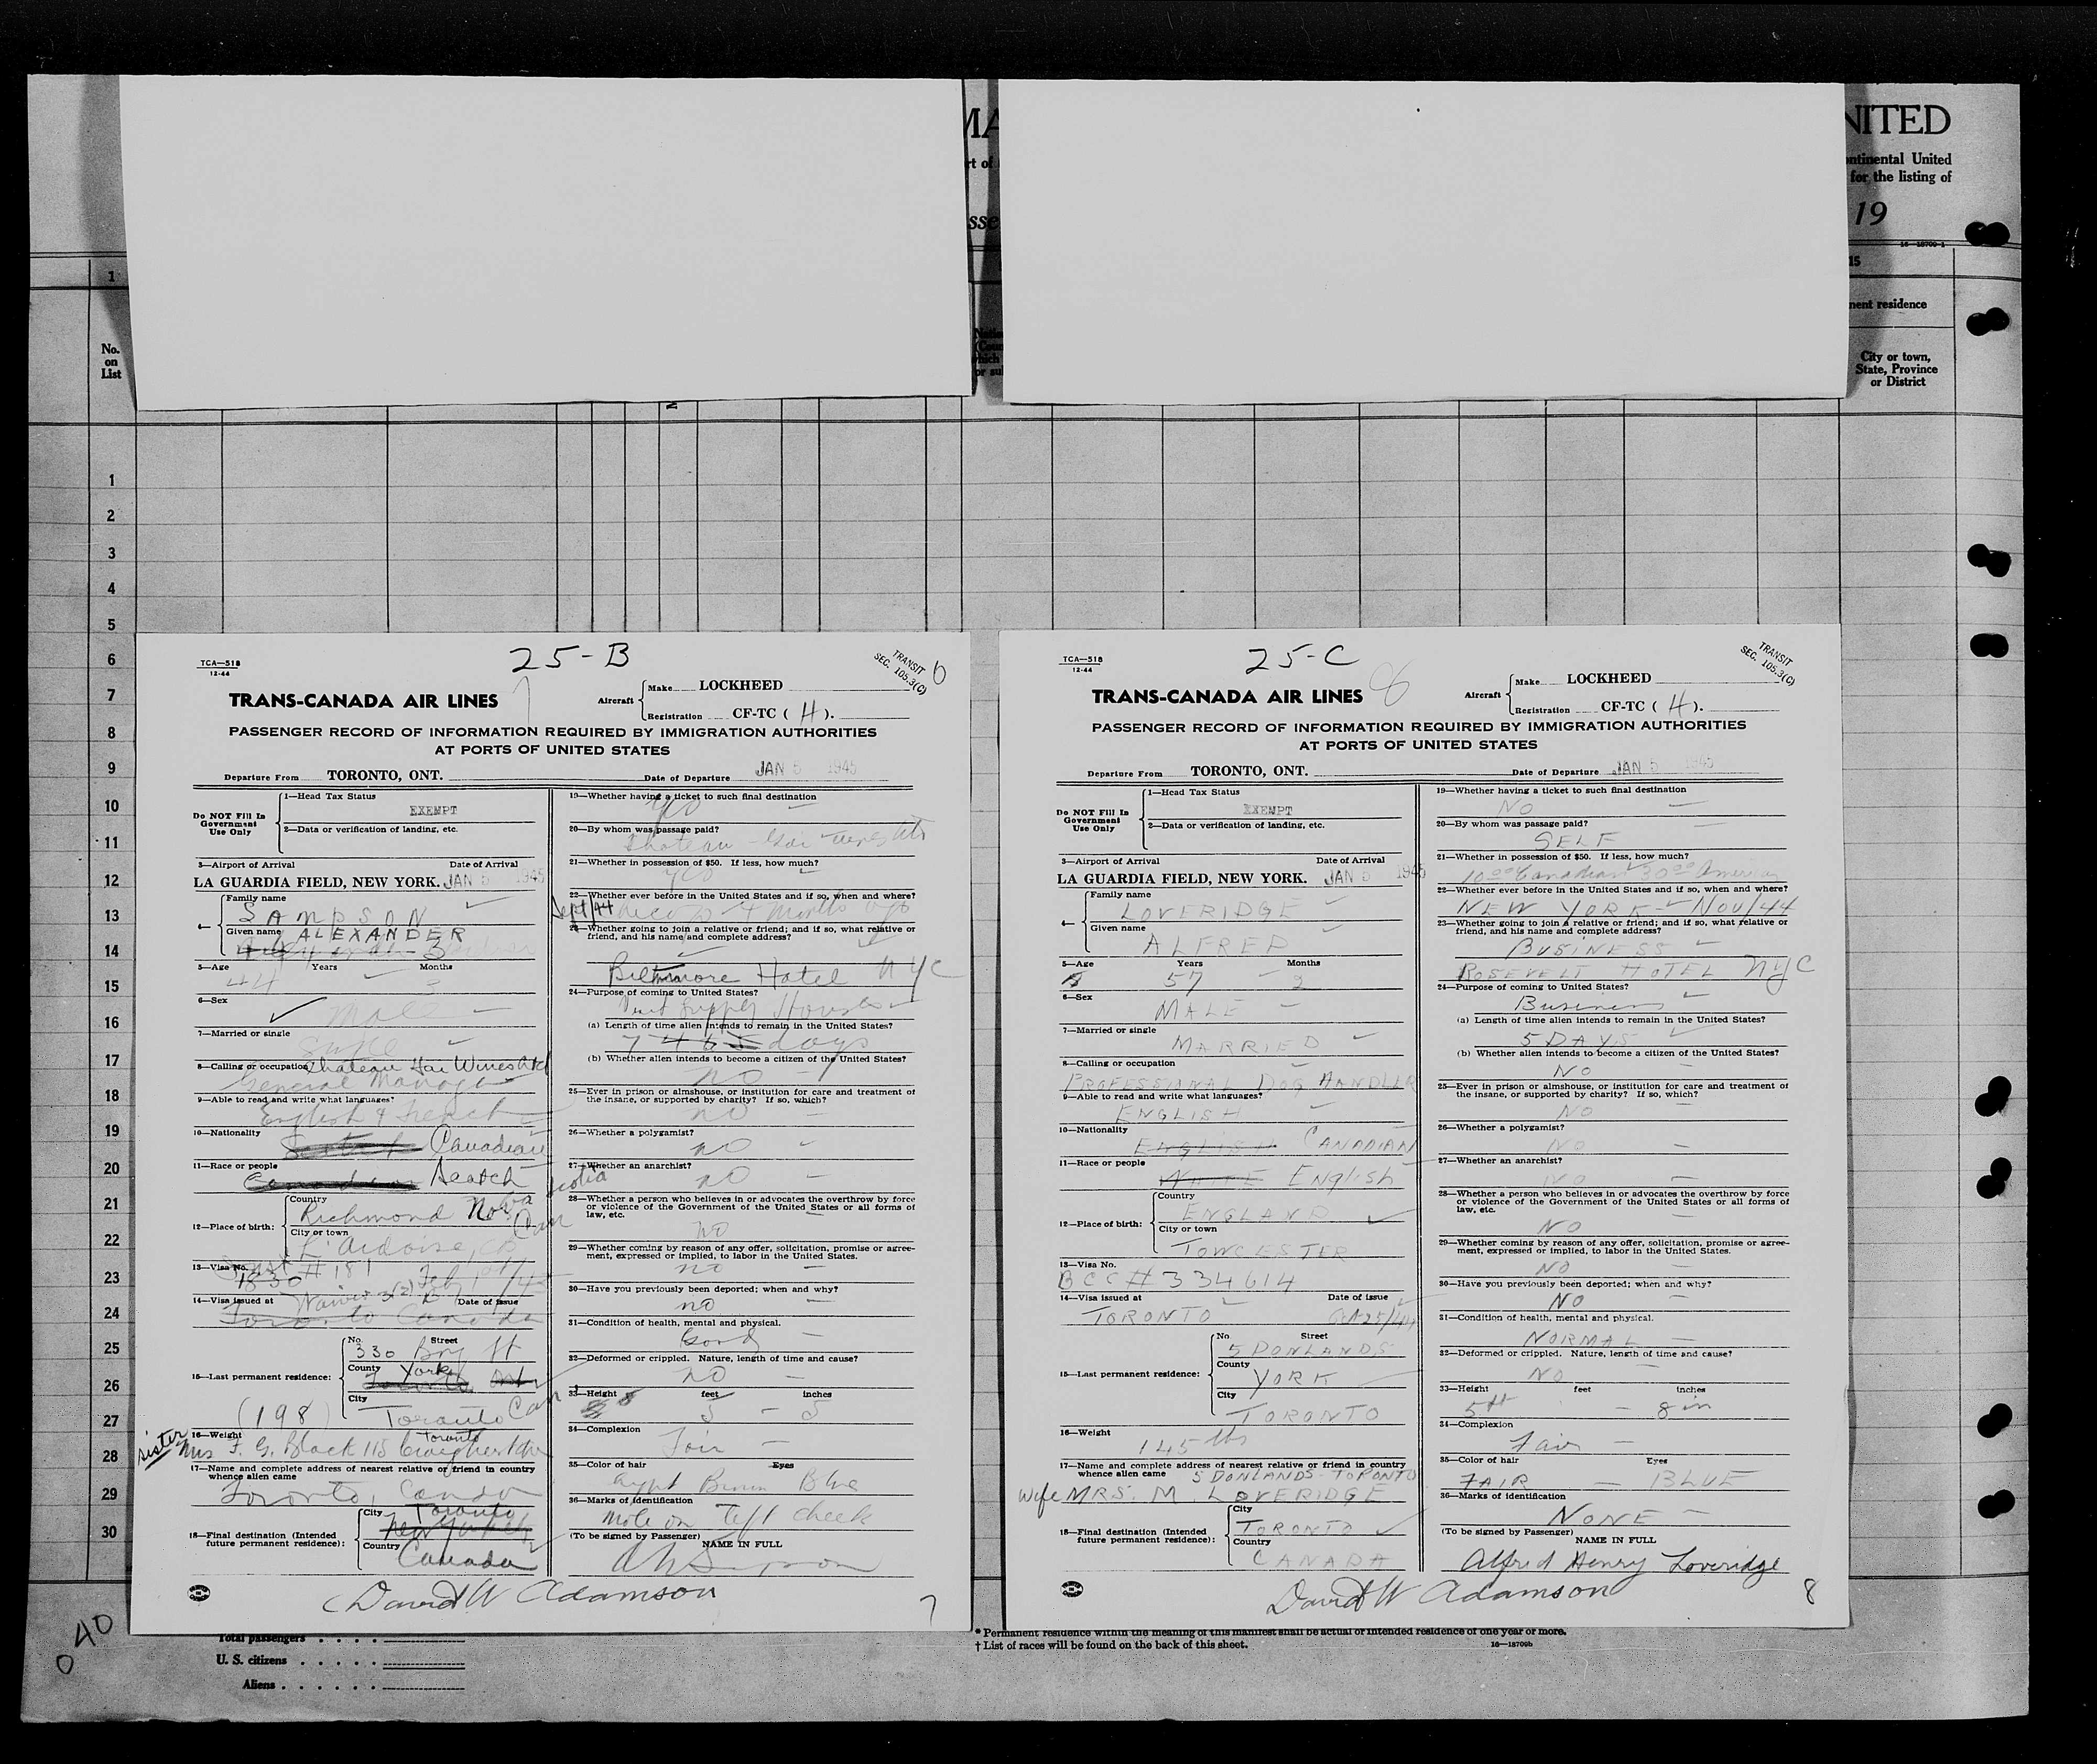 NITED
ntinental United
for the listing of
19
16—18709-1
15
1
nent residence
No.
on
List
City or town,
State, Province
or District
1
2
3
4
5
6
7
8
9
10
11
12
13
14
15
16
17
18
19
20
21
22
23
24
25
26
27
28
29
30
TCA—518
12-44
25-B
TRANSIT
SEC. 105.3(C)
6
TRANS-CANADA AIR LINES
7
Aircraft
Make LOCKHEED
Registration CF-TC ( H ).
PASSENGER RECORD OF INFORMATION REQUIRED BY IMMIGRATION AUTHORITIES
AT PORTS OF UNITED STATES
Departure From TORONTO, ONT. Date of Departure JAN 5 1945
Do NOT Fill In
Government
Use Only
1—Head Tax Status
EXEMPT
2—Data or verification of landing, etc.
3—Airport of Arrival Date of Arrival
LA GUARDIA FIELD, NEW YORK. JAN 5 1945
4—
Family name
SAMPSON
Given name ALEXANDER
5—Age Years Months
44 —
6—Sex
Male
7—Married or single
Single
8—Calling or occupation Chateau Gai Wines Ltd
General Manager
9—Able to read and write what languages?
English & French
10—Nationality
Canadian
11—Race or people
Scotch
12—Place of birth:
Country
Richmond Nova Scotia
Can
City or town
L'Ardoise, CB
13—Visa No. # 181
1830
14—Visa issued at Waiver Date of issue
Toronto Canada
15—Last permanent residence:
No. Street
330 Bay St
County York
City
Toronto Can
(198)
16—Weight Toronto
sister Mrs F. G. Black 115
17—Name and complete address of nearest relative or friend in country
whence alien came
Toronto, Canada
18—Final destination (Intended
future permanent residence):
City Toronto
New York City
Country
Canada
19—Whether having a ticket to such final destination
yes
20—By whom was passage paid?
Chateau Gai Wines Ltd
21—Whether in possession of $50. If less, how much?
yes
22—Whether ever before in the United States and if so, when and where?
Sept/44 4 months ago
23—Whether going to join a relative or friend; and if so, what relative or
friend, and his name and complete address?
Biltmore Hotel NYC
24—Purpose of coming to United States?
Visit Supply Houses
(a) Length of time alien intends to remain in the United States?
days
(b) Whether alien intends to become a citizen of the United States?
no
25—Ever in prison or almshouse, or institution for care and treatment of
the insane, or supported by charity? If so, which?
no
26—Whether a polygamist?
no
27—Whether an anarchist?
no
28—Whether a person who believes in or advocates the overthrow by force
or violence of the Government of the United States or all forms of
law, etc.
no
29—Whether coming by reason of any offer, solicitation, promise or agree-
ment, expressed or implied, to labor in the United States.
no
30—Have you previously been deported; when and why?
no
31—Condition of health, mental and physical.
Good
32—Deformed or crippled. Nature, length of time and cause?
no
33—Height feet inches
5 — 5
34—Complexion
Fair
35—Color of hair Eyes
Light Brown Blue
36—Marks of identification
Mole on left cheek
(To be signed by Passenger) NAME IN FULL
David W Adamson
7
TCA—518
12-44
25-C
TRANSIT
SEC. 105.3(C)
TRANS-CANADA AIR LINES
8
Aircraft
Make LOCKHEED
Registration CF-TC ( H ).
PASSENGER RECORD OF INFORMATION REQUIRED BY IMMIGRATION AUTHORITIES
AT PORTS OF UNITED STATES
Departure From TORONTO, ONT. Date of Departure JAN 5 1945
Do NOT Fill In
Government
Use Only
1—Head Tax Status
EXEMPT
2—Data or verification of landing, etc.
3—Airport of Arrival Date of Arrival
LA GUARDIA FIELD, NEW YORK. JAN 5 1945
4—
Family name
LOVERIDGE
Given name
ALFRED
5—Age Years Months
57 2
6—Sex
MALE
7—Married or single
MARRIED
8—Calling or occupation
PROFESSIONAL DOG HANDLER
9—Able to read and write what languages?
ENGLISH
10—Nationality
ENGLISH CANADIAN
11—Race or people
WHITE English
12—Place of birth:
Country
ENGLAND
City or town
TOWCESTER
13—Visa No.
BCC # 334614
14—Visa issued at Date of issue
TORONTO Oct 25/44
15—Last permanent residence:
No. Street
5 DONLANDS
County
YORK
City
TORONTO
16—Weight
145 lbs
17—Name and complete address of nearest relative or friend in country
whence alien came 5 DONLANDS - TORONTO
wife MRS. M LOVERIDGE
18—Final destination (Intended
future permanent residence):
City
TORONTO
Country
CANADA
19—Whether having a ticket to such final destination
NO
20—By whom was passage paid?
SELF
21—Whether in possession of $50. If less, how much?
10.00 Canadian 30.00 American
22—Whether ever before in the United States and if so, when and where?
NEW YORK - Nov/44
23—Whether going to join a relative or friend; and if so, what relative or
friend, and his name and complete address?
BUSINESS
ROSEVELT HOTEL NYC
24—Purpose of coming to United States?
Business
(a) Length of time alien intends to remain in the United States?
5 DAYS
(b) Whether alien intends to become a citizen of the United States?
NO
25—Ever in prison or almshouse, or institution for care and treatment of
the insane, or supported by charity? If so, which?
NO
26—Whether a polygamist?
NO
27—Whether an anarchist?
NO
28—Whether a person who believes in or advocates the overthrow by force
or violence of the Government of the United States or all forms of
law, etc.
NO
29—Whether coming by reason of any offer, solicitation, promise or agree-
ment, expressed or implied, to labor in the United States.
NO
30—Have you previously been deported; when and why?
NO
31—Condition of health, mental and physical.
NORMAL
32—Deformed or crippled. Nature, length of time and cause?
NO
33—Height feet inches
5 ft — 8 in
34—Complexion
Fair
35—Color of hair Eyes
FAIR — BLUE
36—Marks of identification
NONE
(To be signed by Passenger) NAME IN FULL
Alfred Henry Loveridge
David W Adamson
8
40
0
Total passengers
U. S. citizens
Aliens
* Permanent residence within the meaning of this manifest shall be actual or intended residence of one year or more.
† List of races will be found on the back of this sheet.
16—18709b